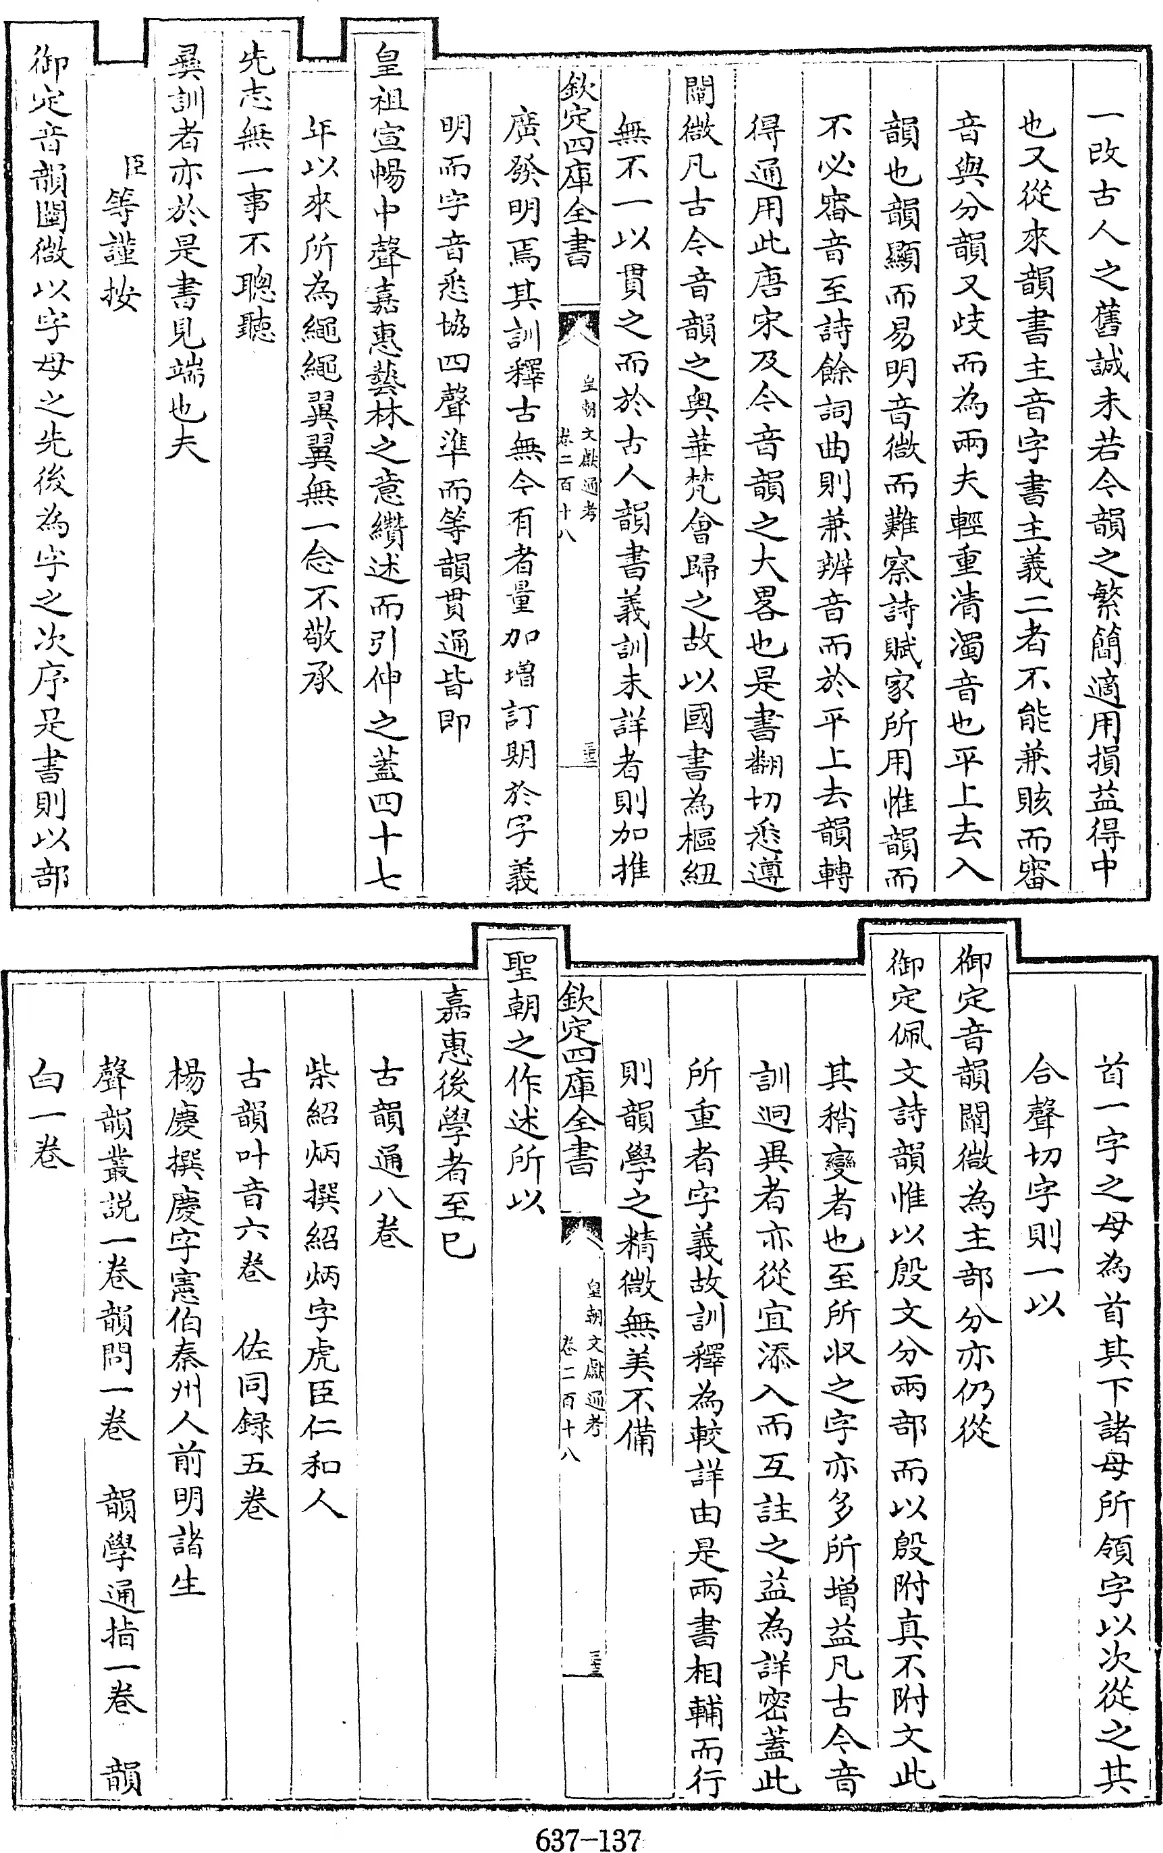 一改古人之舊誠未若今韻之繁簡適用損益得中
也又從來韻書主音字書主義二者不能兼賅而審
音與分韻又歧而為兩夫輕重清濁音也平上去入
韻也韻顯而易明音微而難察詩賦家所用惟韻而
不必審音至詩餘詞曲則兼辨音而於平上去韻轉
得通用此唐宋及今音韻之大畧也是書翻切悉遵
闡微凡古今音韻之奥華梵會歸之故以國書為樞紐
無不一以貫之而於古人韻書義訓未詳者則加推
欽定四庫全書
皇朝文獻通考
卷二百十八
廣發明焉其訓釋古無今有者量加增訂期於字義
明而字音悉協四聲準而等韻貫通皆即
皇祖宣暢中聲嘉惠藝林之意纘述而引伸之蓋四十七
年以來所為繩繩翼翼無一念不敬承
先志無一事不聰聽
彞訓者亦於是書見端也夫
臣等謹按
御定音韻闡微以字母之先後為字之次序是書則以部
首一字之母為首其下諸母所領字以次從之其
合聲切字則一以
御定音韻闡微為主部分亦仍從
御定佩文詩韻惟以殷文分兩部而以殷附真不附文此
其稍變者也至所收之字亦多所增益凡古今音
訓迥異者亦從宜添入而互註之益為詳密蓋此
所重者字義故訓釋為較詳由是兩書相輔而行
則韻學之精微無美不備
欽定四庫全書
皇朝文獻通考
卷二百十八
聖朝之作述所以
嘉惠後學者至已
古韻通八卷
柴紹炳撰紹炳字虎臣仁和人
古韻叶音六卷　佐同録五卷
楊慶撰慶字憲伯秦州人前明諸生
聲韻叢説一卷韻問一卷　韻學通指一卷　韻
白一卷
637-137